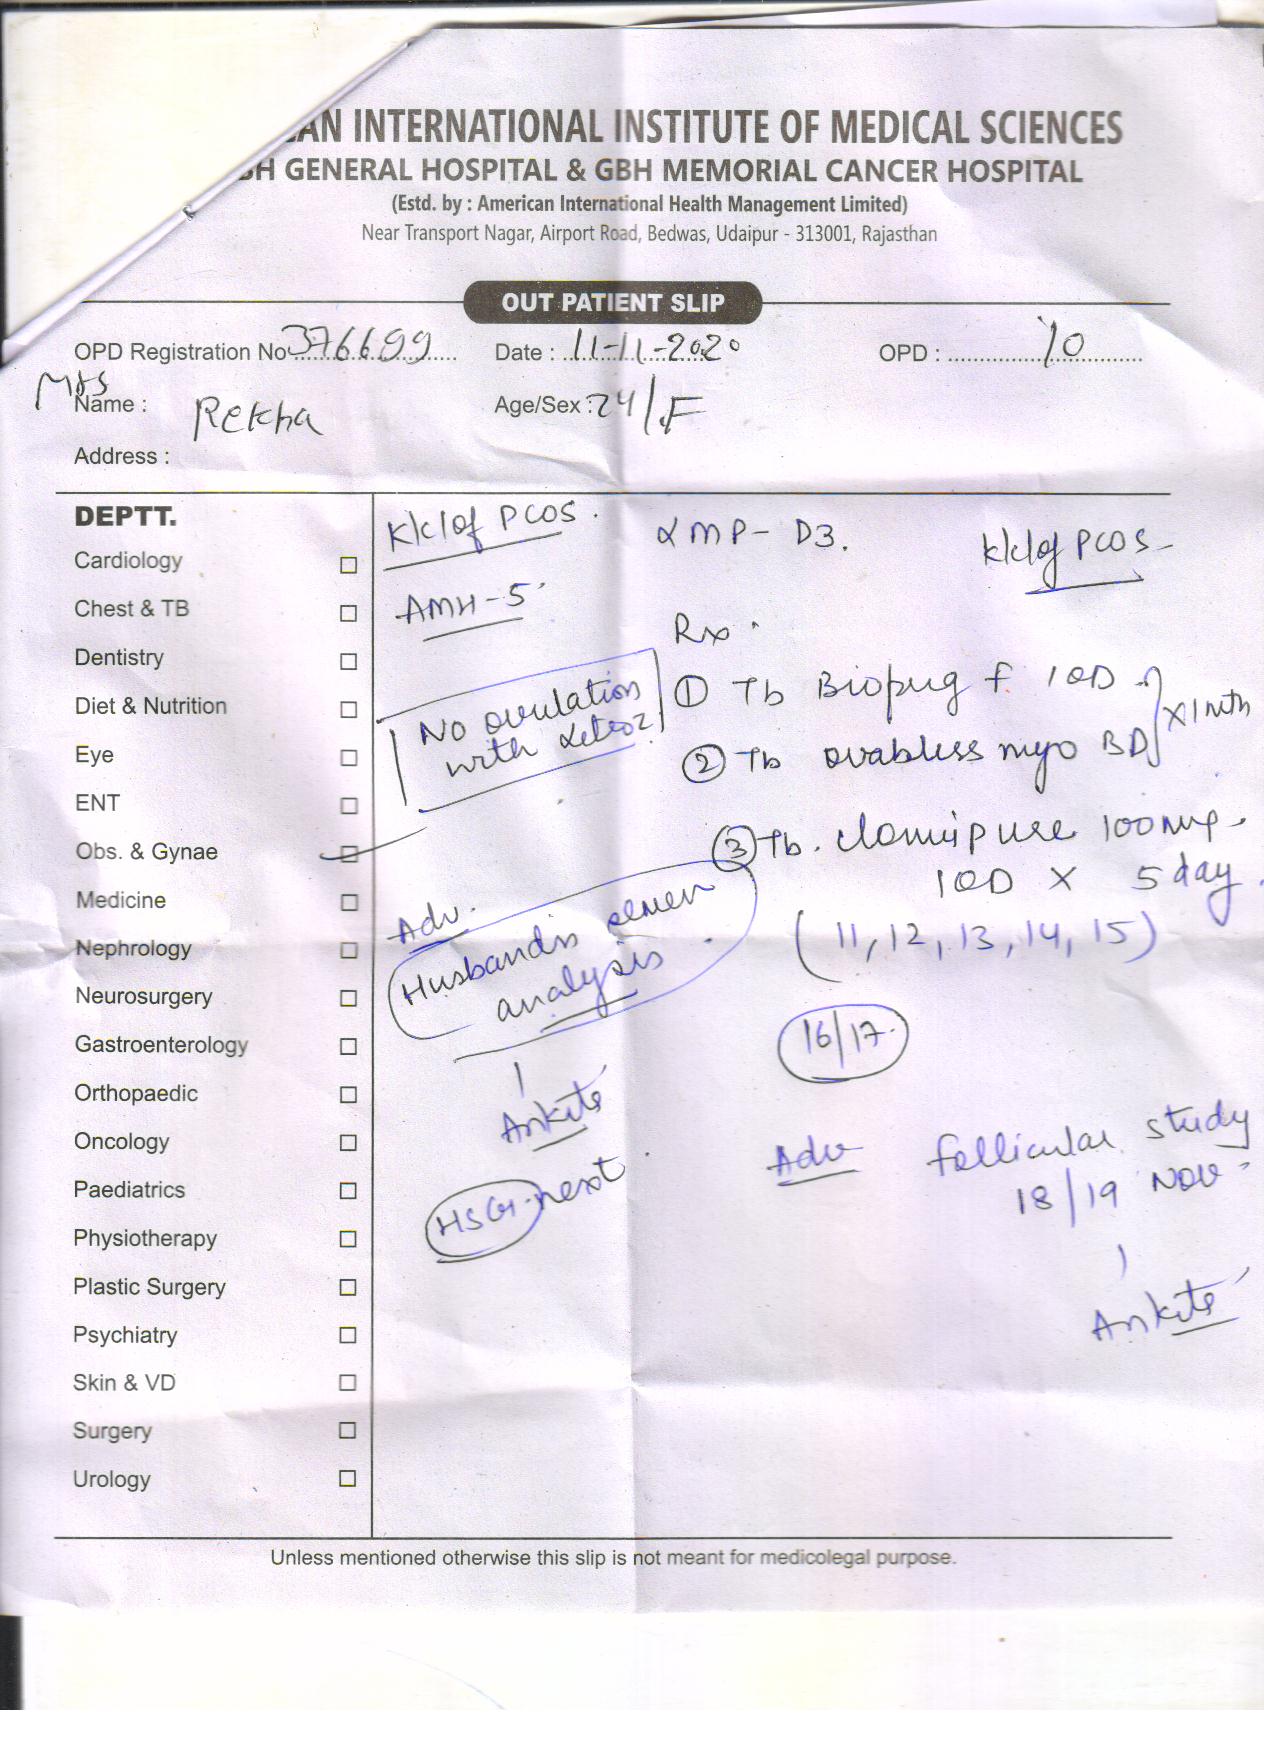 AN INTERNATIONAL INSTITUTE OF MEDICAL SCIENCES
BH GENERAL HOSPITAL & GBH MEMORIAL CANCER HOSPITAL
(Estd. by : American International Health Management Limited)
Near Transport Nagar, Airport Road, Bedwas, Udaipur - 313001, Rajasthan
OUT PATIENT SLIP
OPD Registration No 376699 Date : 11-11-2020 OPD : 10
Mrs
Name : Rekha Age/Sex : 24/F
Address :
DEPTT.
Cardiology
Chest & TB
Dentistry
Diet & Nutrition
Eye
ENT
Obs. & Gynae
Medicine
Nephrology
Neurosurgery
Gastroenterology
Orthopaedic
Oncology
Paediatrics
Physiotherapy
Plastic Surgery
Psychiatry
Skin & VD
Surgery
Urology
K/c/of PCOS.
AMH-5
No ovulation
with Letroz
Adv.
Husband's semen
analysis
Ankita
HSG-next
LMP- D3.
K/c/of PCOS
Rx
① Tb Biopreg F 1OD
x1mth
② Tb ovabless myo BD
③ Tb. Clomipure 100mg.
1OD X 5 day.
(11, 12, 13, 14, 15)
16/17.
Adv follicular study
18/19 NOV
Ankita
Unless mentioned otherwise this slip is not meant for medicolegal purpose.